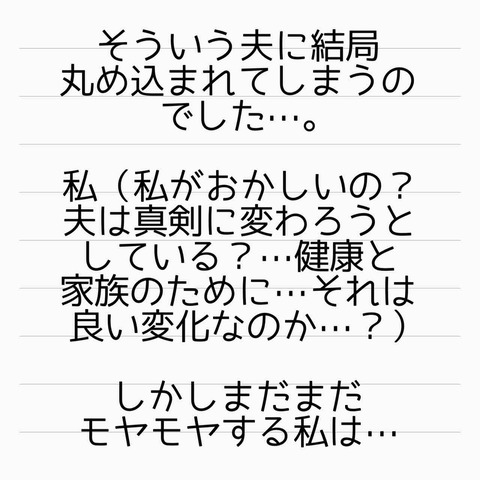 そういう夫に結局
丸め込まれてしまうの
でした…。
私（私がおかしいの？
夫は真剣に変わろうと
している？…健康と
家族のために…それは
良い変化なのか…？）
しかしまだまだ
モヤモヤする私は…